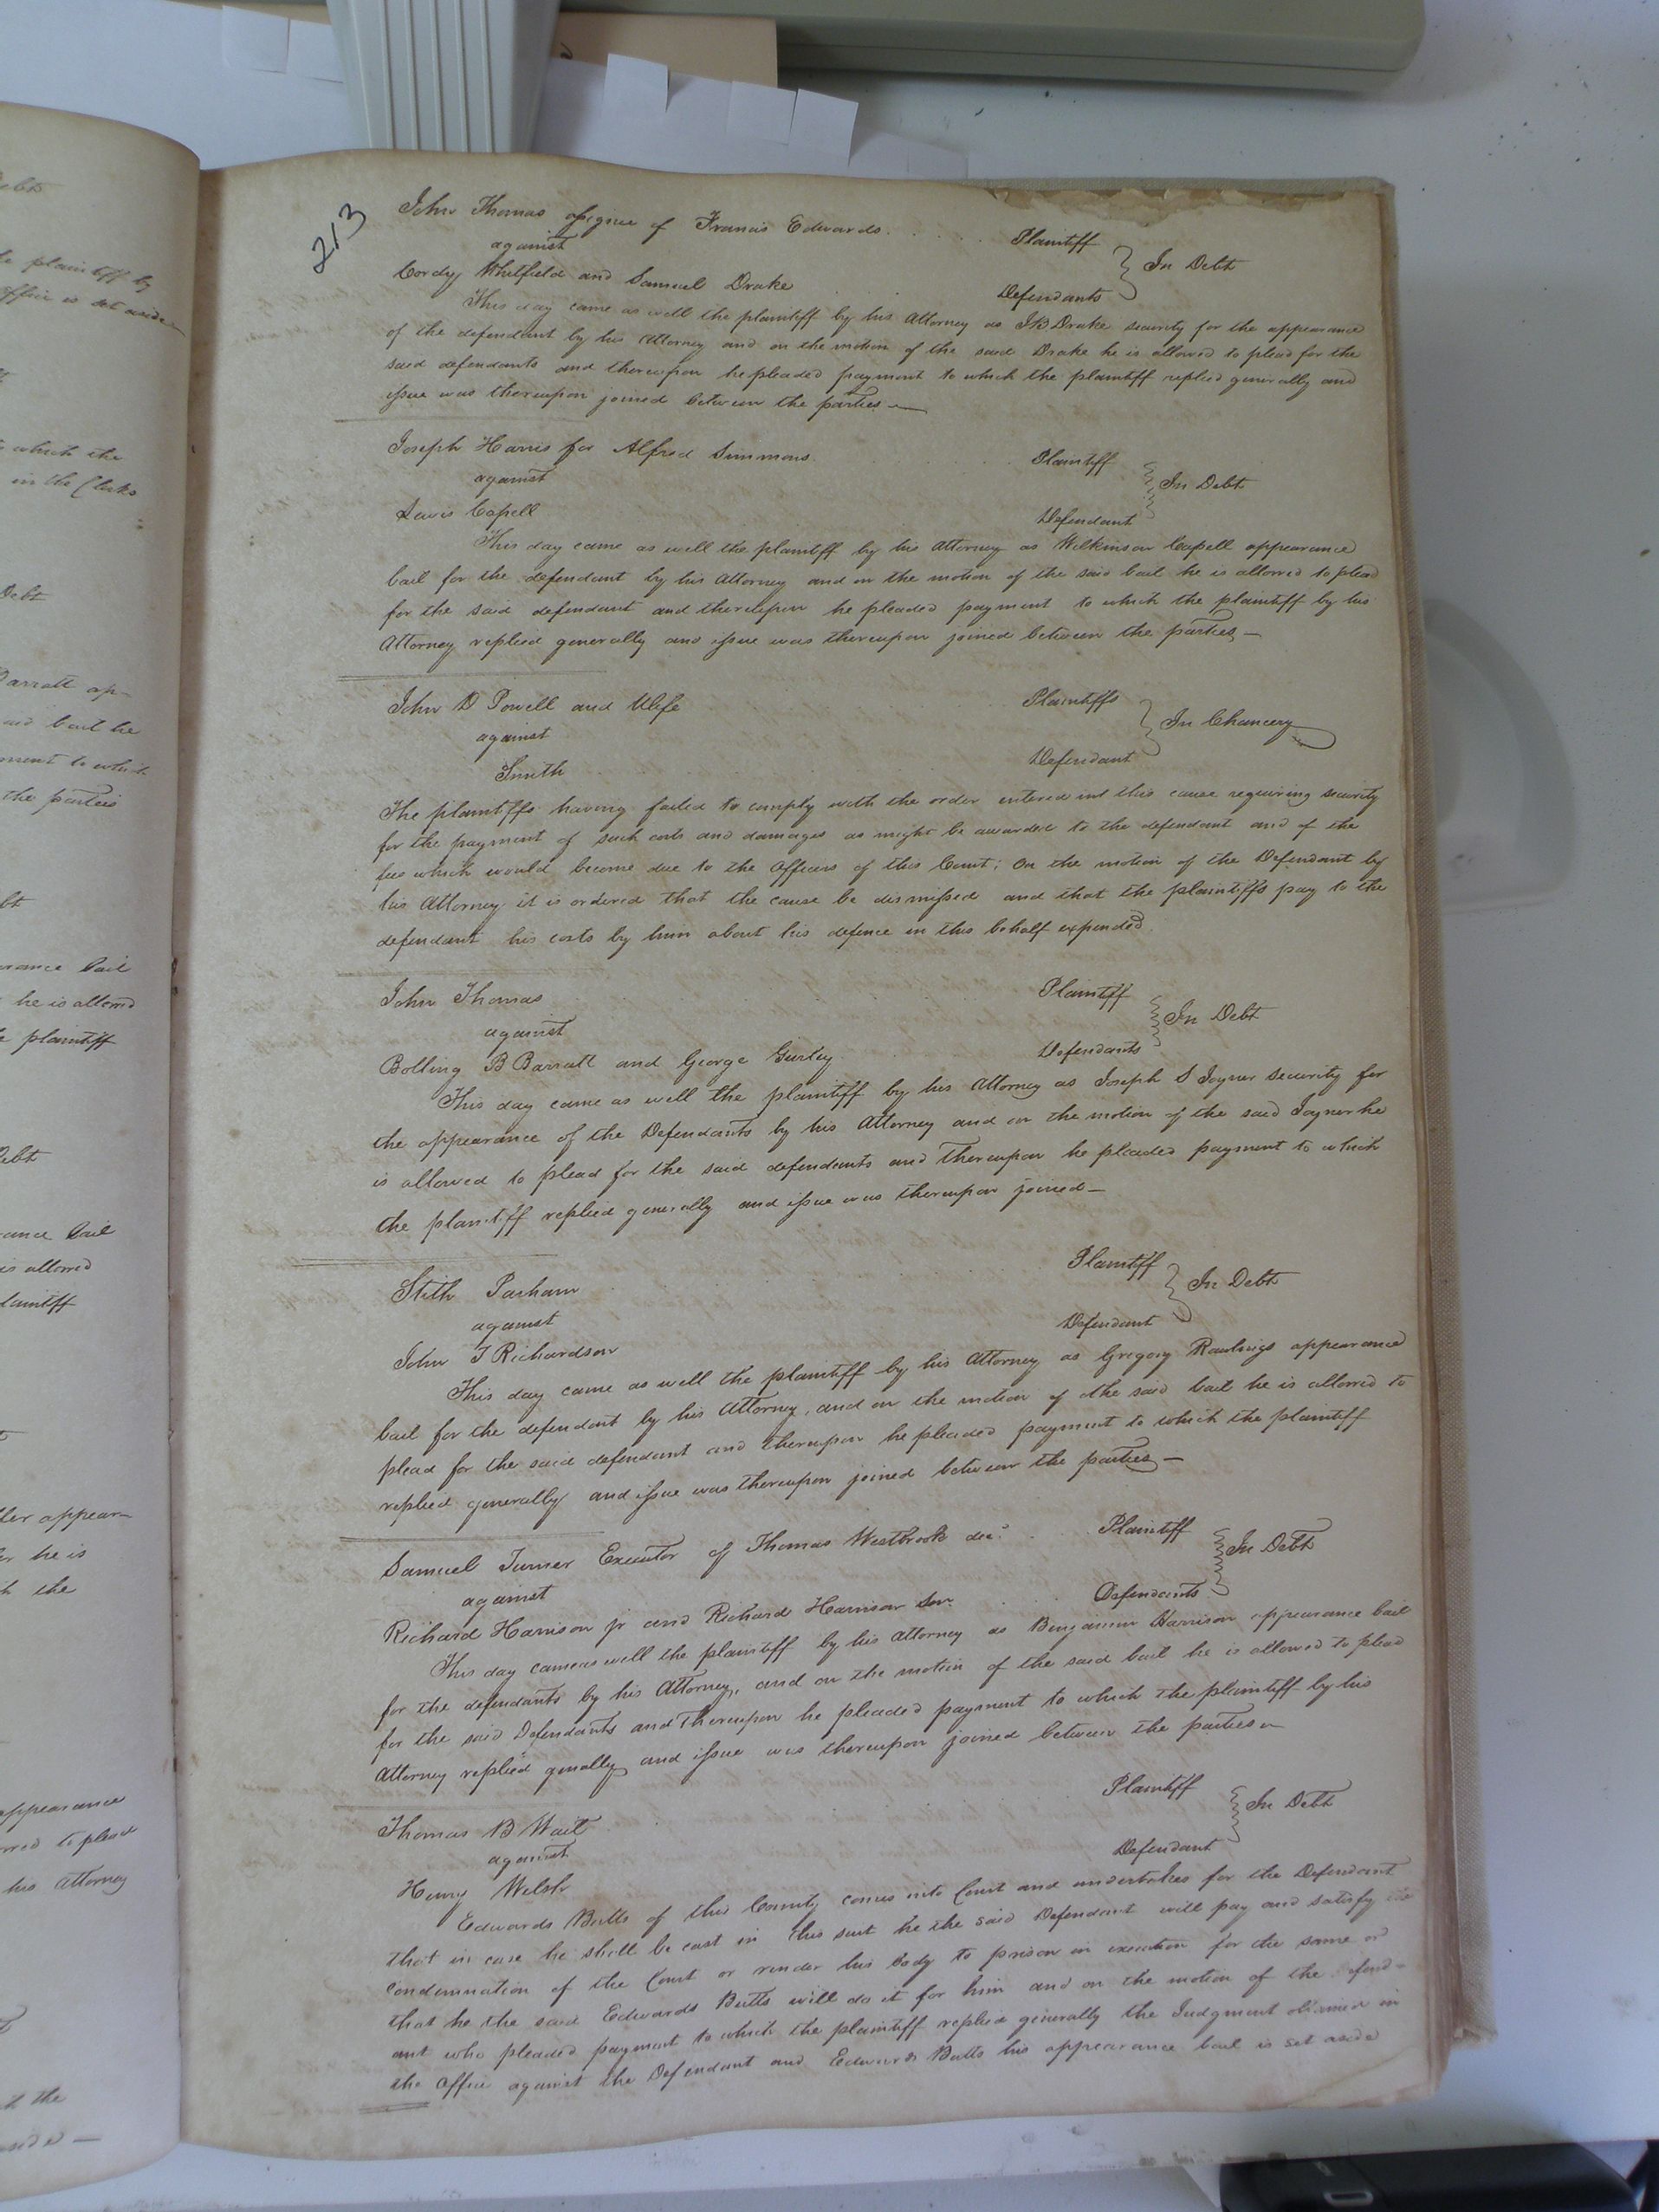 213
John Thomas assignee of Francis Edwards . . . . . Plaintiff
against } In Debt
Cordy Whitfield and Samuel Drake . . Defendants
This day came as well the plaintiff by his Attorney as Drake security for the appearance
of the defendant by his Attorney and on the motion of the said Drake he is allowed to plead for the
said defendants and thereupon he pleaded payment to which the plaintiff replied generally and
issue was thereupon joined between the parties —
Joseph Harris for Alfred Simmons . . . Plaintiff
against } In Debt
Lewis Capell Defendant
This day came as well the plaintiff by his Attorney as Wilkinson Capell appearance
bail for the defendant by his Attorney and on the motion of the said bail he is allowed to plead
for the said defendant and thereupon he pleaded payment to which the plaintiff by his
Attorney replied generally and issue was thereupon joined between the parties —
John D Powell and Wife . . . Plaintiffs
against } In Chancery
Smith . . . Defendant
The plaintiffs having failed to comply with the order entered in this cause requiring security
for the payment of such costs and damages as might be awarded to the defendant and of the
fees which would become due to the Officers of this Court; On the motion of the Defendant by
his Attorney it is ordered that the cause be dismissed and that the plaintiffs pay to the
defendant his costs by him about his defence in this behalf expended.
John Thomas Plaintiff
against } In Debt
Bolling B Barratt and George Gurley . Defendants
This day came as well the plaintiff by his Attorney as Joseph S Joyner security for
the appearance of the Defendants by his Attorney and on the motion of the said Joyner he
is allowed to plead for the said defendants and thereupon he pleaded payment to which
the plaintiff replied generally and issue was thereupon joined —
Stith Parham . . . Plaintiff
against } In Debt
John T Richardson Defendant
This day came as well the plaintiff by his Attorney as Gregory Rawlings appearance
bail for the defendant by his Attorney, and on the motion of the said bail he is allowed to
plead for the said defendant and thereupon he pleaded payment to which the plaintiff
replied generally and issue was thereupon joined between the parties —
Samuel Turner Executor of Thomas Westbrook decd . . . Plaintiff
against } In Debt
Richard Harrison jr and Richard Harrison Senr . . Defendants
This day came as well the plaintiff by his Attorney as Benjamin Harrison appearance bail
for the defendants by his Attorney, and on the motion of the said bail he is allowed to plead
for the said Defendants and thereupon he pleaded payment to which the plaintiff by his
Attorney replied genally and issue was thereupon joined between the parties —
Thomas B Wait . . . Plaintiff
against } In Debt
Henry Welsh Defendant
Edwards Butts of this County comes into Court and undertakes for the Defendant
that in case he shall be cast in this suit he the said Defendant will pay and satisfy the
condemnation of the Court or render his body to prison in execution for the same or
that he the said Edwards Butts will do it for him and on the motion of the defend-
ant who pleaded payment to which the plaintiff replied generally the Judgment obtained in
the Office against the Defendant and Edwards Butts his appearance bail is set aside